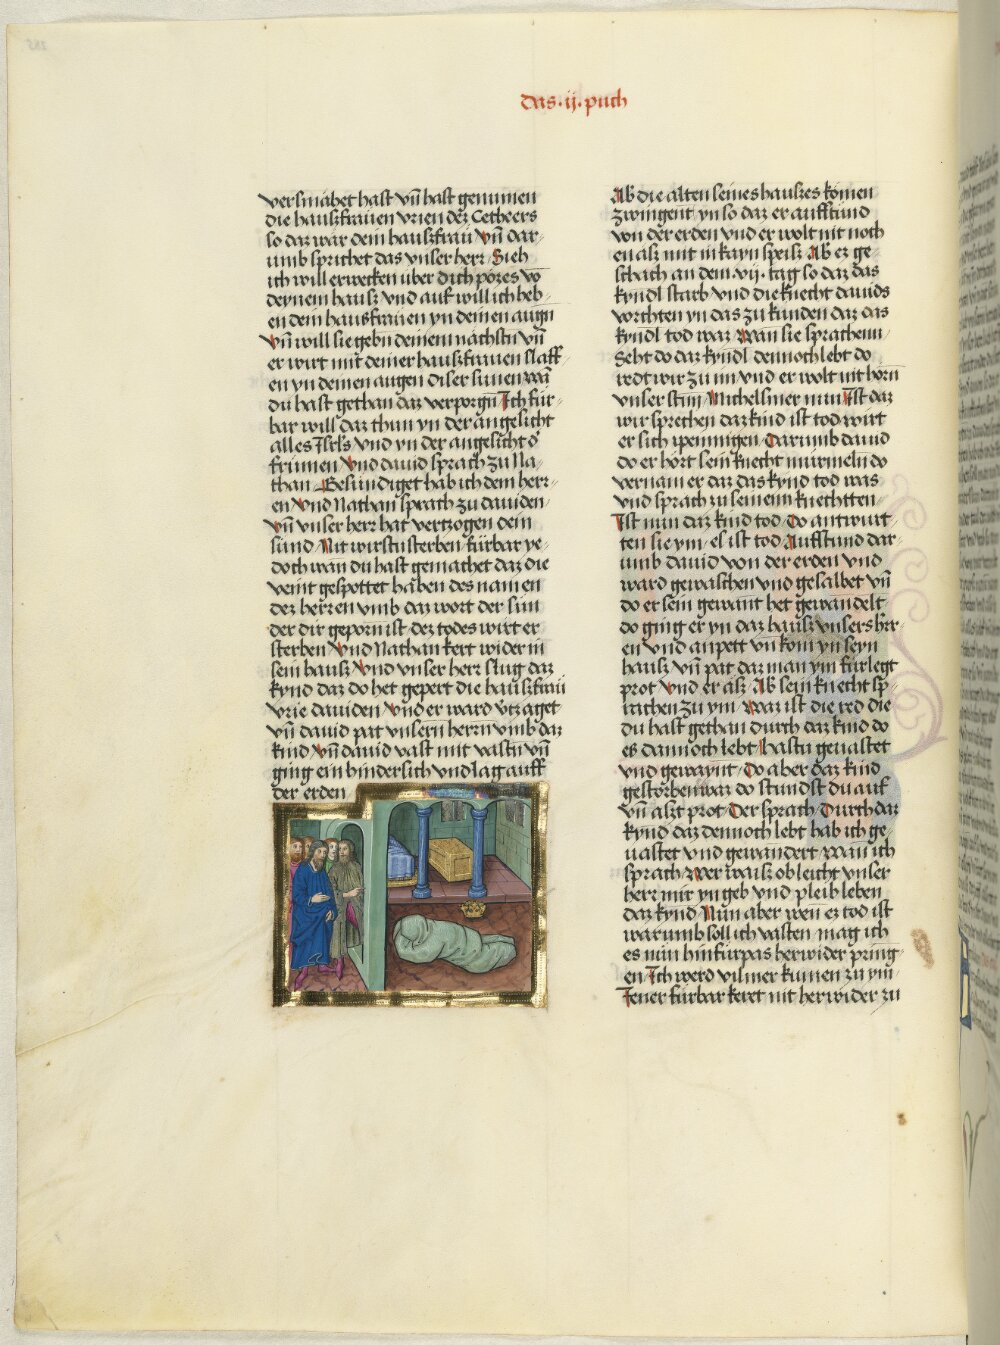 das · ij · puch
versmähet hast vn̄ hast genumen
die hauszfrauen vrien dez̄ Cetheers
so daz wär dein hauszfrau vn̄ dar-
umb sprichet das vnser herr Sieh
ich will erwecken über dich pözes vō
deynem hausz vnd auf will ich heb-
en dein hausfrauen yn deinen augn
vn̄ will sie gebn deinem nächstn vn̄
er wirt mit deiner hauszfrauen slaff-
en yn deinen augen diser sunen wān
du hast gethan daz verporgn Ich für-
bar will daz thun yn der angesicht
alles Isrls vnd yn der angesicht d'
sunnen Vnd dauid sprach zu Na-
than Gesündiget hab ich dem herr-
en Vnd Nathan sprach zu dauiden
vn̄ vnser herr hat vertzogen dein
sünd Nit wirstu sterben fürbar ye-
doch wān du hast gemachet daz die
veint gespottet haben des namen
dez herren vmb daz wort der sun
der dir geporn ist dez todes wirt er
sterben Vnd Nathan kert wider in
sein hausz Vnd vnser herr slug daz
kynd daz do het gepert die hauszfraü
vrie dauiden Vnd er ward vrzaget
vn̄ dauid pat vnsern herrn vmb daz
kind Vn̄ dauid vast mit vastn vn̄
ging ein hindersich vnd lag auff
der erden
Ab die alten seines hauszes kömen
zwingent yn so daz er aufftünd
von der erden vnd er wolt nit noch
en asz mit in kayn speisz Ab ez ge
schach an dem vij · tag so daz das
kyndl starb vnd die knecht dauids
vorchten yn das zu kunden daz das
kyndl tod war Wan sie sprachenn
Seht do daz kyndl dennoch lebt do
redt wir zu im vnd er wolt nit hörn
vnser stim Michelsmer nun Ist daz
wir sprechen daz kind ist tod wirt
er sich ipennigen Darumb dauid
do er hört sein knecht murmeln do
vernam er daz das kynd tod was
vnd sprach zu seinenn knechtten
Ist nun daz kind tod Do antwurt-
ten sie ym · es ist tod Aufstund dar-
umb dauid von der erden vnd
ward gewaschen vnd gesalbet vn̄
do er sein gewant het gewandelt
do ging er yn daz hausz vnsers hīr-
en vnd anpett vn̄ kom yn seyn
hausz vn̄ pat daz man ym fürlegt
prot Vnd er asz Ab sein knecht sp-
rachen zu ym Waz ist die red die
du hast gethan durch daz kind do
es dannoch lebt hastu geuastet
vnd gewaynt Do aber daz kind
gestorben waz do stundst du auf
vn̄ aszt prot Der sprach Durch daz
kynd daz dennoch lebt hab ich ge-
uastet vnd gewandert Wan ich
sprach Wer waisz ob leicht vnser
herr mir yn geb vnd pleib leben
daz kynd Nun aber wen ez tod ist
warumb soll ich vasten mag ich
es nun hinfürpas herwider pring-
en Ich werd vilmer kumen zu ym
Jener fürbar keret nit herwider zu